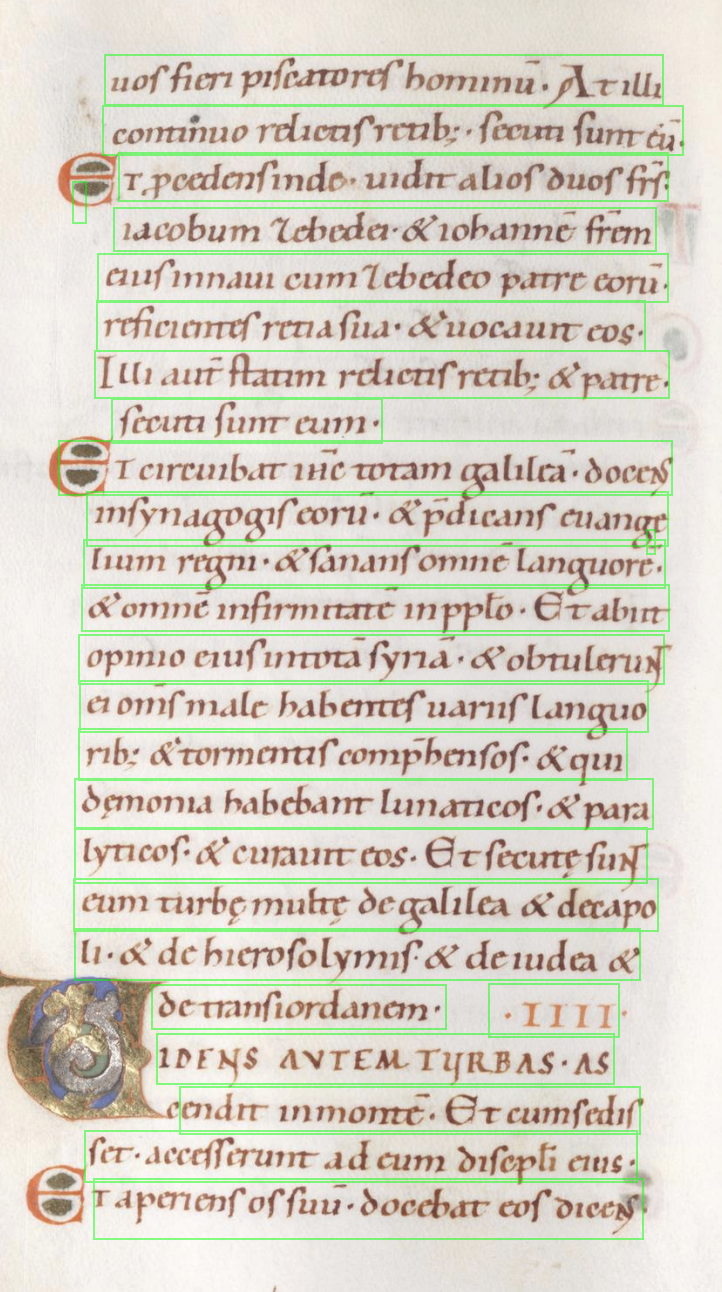 uos fieri piscatores hominū· At illi
continuo relictis retib;· secuti sunt eū·
Et ꝓcedens inde· uidit alios duos fr̄s·
iacobum zebedei· & iohannē fr̄em
eius in naui cum zebedeo patre eorū·
reficientes retia sua· & uocauit eos·
Illi aut̄ statim relictis retib; & patre·
secuti sunt eum·
Et circuibat ih̄c totam galileā· docens
in synagogis eorū· & p̄dicans euange
lium regni· & sanans omnē languorē·
& omnē infirmitatē in pplo̅· Et abiit
opinio eius in totā syriā· & obtulerunt
ei om̄s male habentes uariis languo
rib; & tormentis comp̄hensos· & qui
dęmonia habebant lunaticos· & para
lyticos· & curauit eos· Et secutę sunt
eum turbę multę de galilea & decapo
li· & de hierosolymis· & de iudea &
de transiordanem· ·IIII·
VIDENS AVTEM TURBAS· AS
cendit in montē· Et cum sedis
set· accesserunt ad eum discipli̅ eius·
Et aperiens os suū· docebat eos dicens·